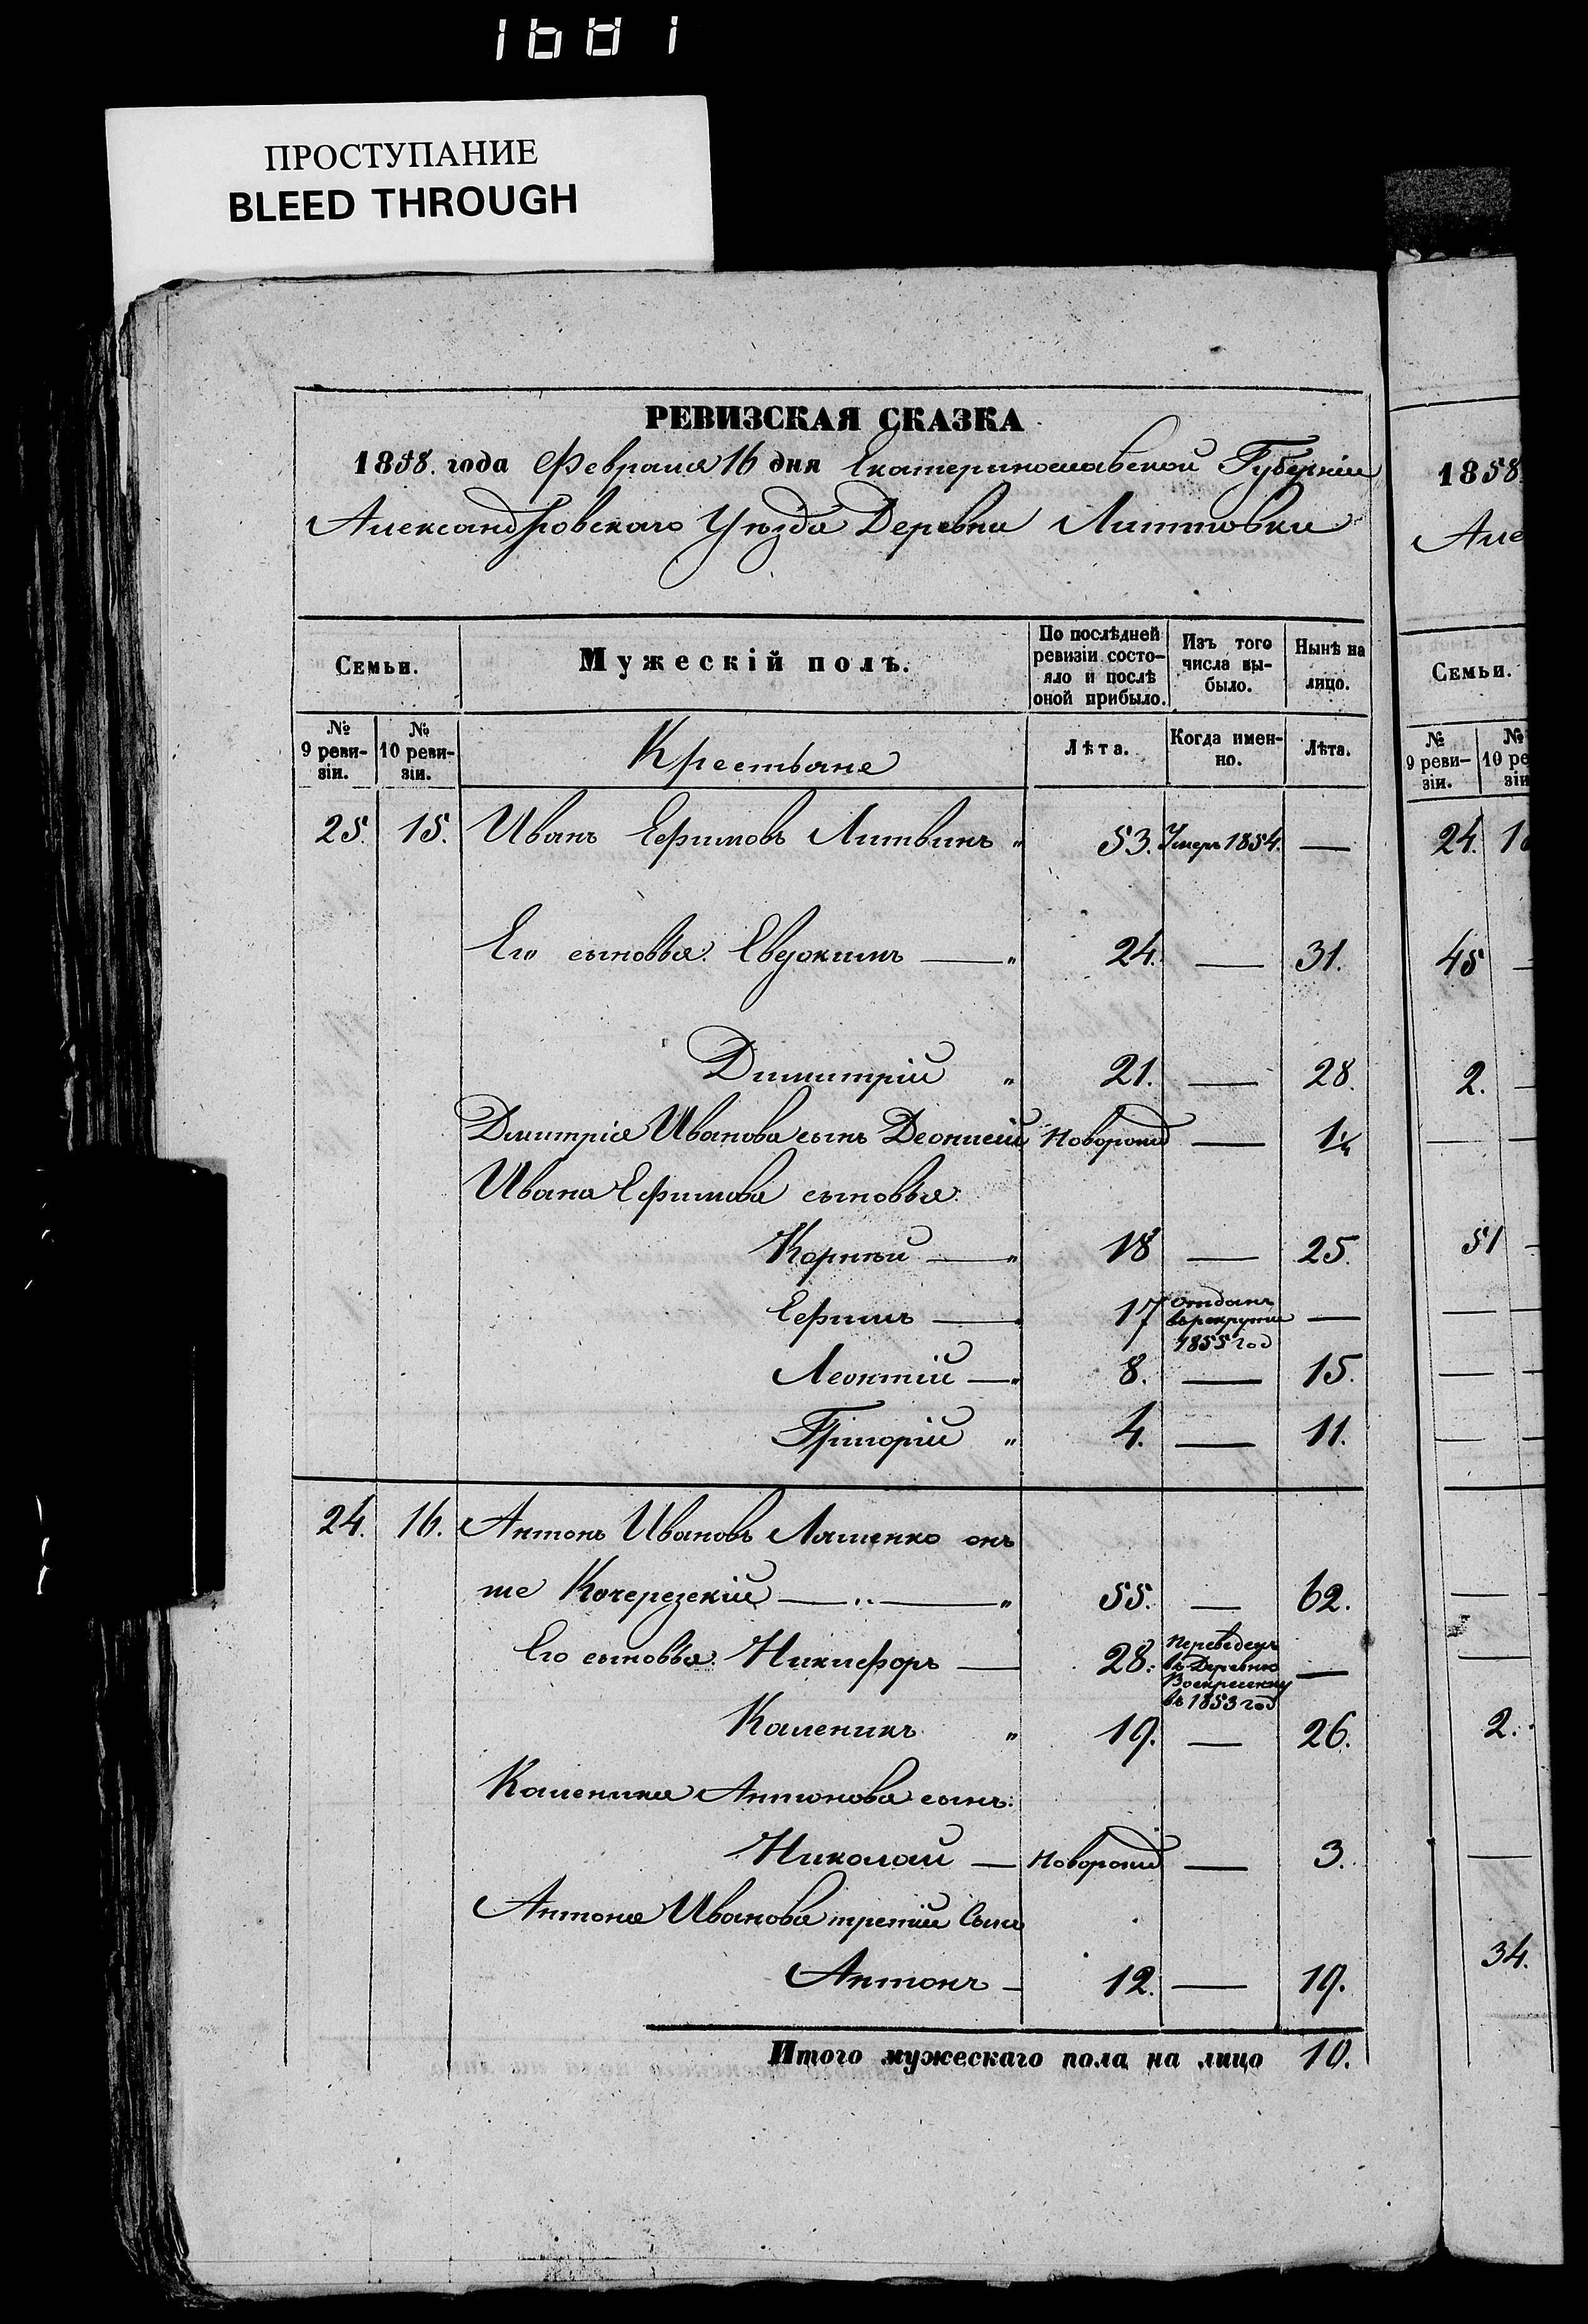 1681
ПРОСТУПАНИЕ
BLEED THROUGH
РЕВИЗСКАЯ СКАЗКА
1858. года Февраля 16 дня Екатеринославской Губерніи
Александровскаго Уѣзда Деревни
Семьи. Мужескій полъ. По послѣдней ревизіи состояло и послѣ оной прибыло. Изъ того числа выбыло. Нынѣ на лицо.
№ 9 ревизіи. № 10 ревизіи. Крестьяне Лѣта. Когда именно. Лѣта.
25. 15. Иванъ Ефимовъ Литвинъ „ 53. Умеръ 1854. —
Его сыновья: Евдокимъ — „ 24. — 31.
Димитрій „ 21. — 28.
Дмитрія Иванова сынъ Деонисій Новорожд — 1¼
Ивана Ефимова сыновья:
Корнѣй — „ 18 — 25.
Ефимъ — 17 отданъ въ рекруты 1855 год —
Леонтій — „ 8. — 15.
Григорій „ 4. — 11.
24. 16. Антонъ Ивановъ Ляшенко онъ
же Кочерезскій — „ 55. — 62.
Его сыновья: Никифоръ — 28. переведенъ въ Деревню Воскресенку въ 1853 год —
Каленикъ „ 19. — 26.
Каленика Антонова сынъ:
Николай — Новорожд — 3.
Антона Иванова третій Сынъ
Антонъ — 12. — 19.
Итого мужескаго пола на лицо 10.
1858.
Але
Семьи.
№ 9 ревизіи. № 10 ре зіи
24. 1
45 —
2. —
—
51 —
—
—
—
—
—
2.
—
34.